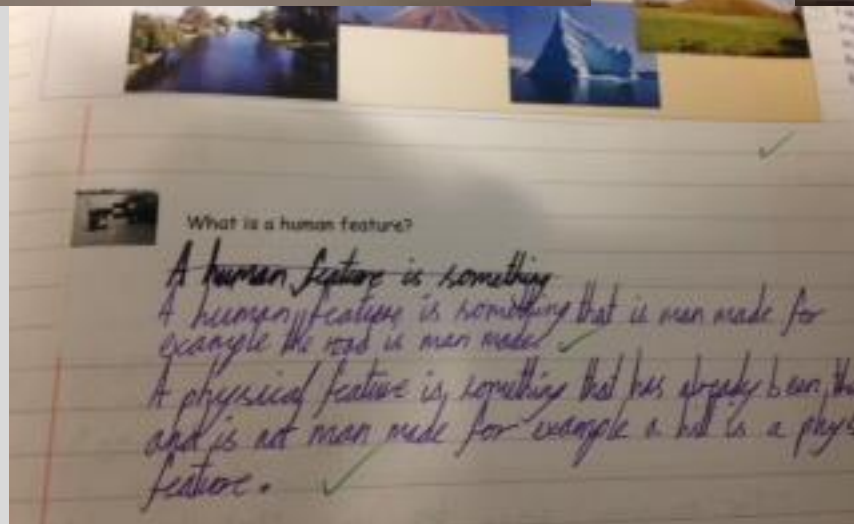 What is a human feature?
A human feature is something
A human feature is something that is man made for
example the road is man made
A physical feature is something that has already been
and is not man made for example a hill is a
feature.